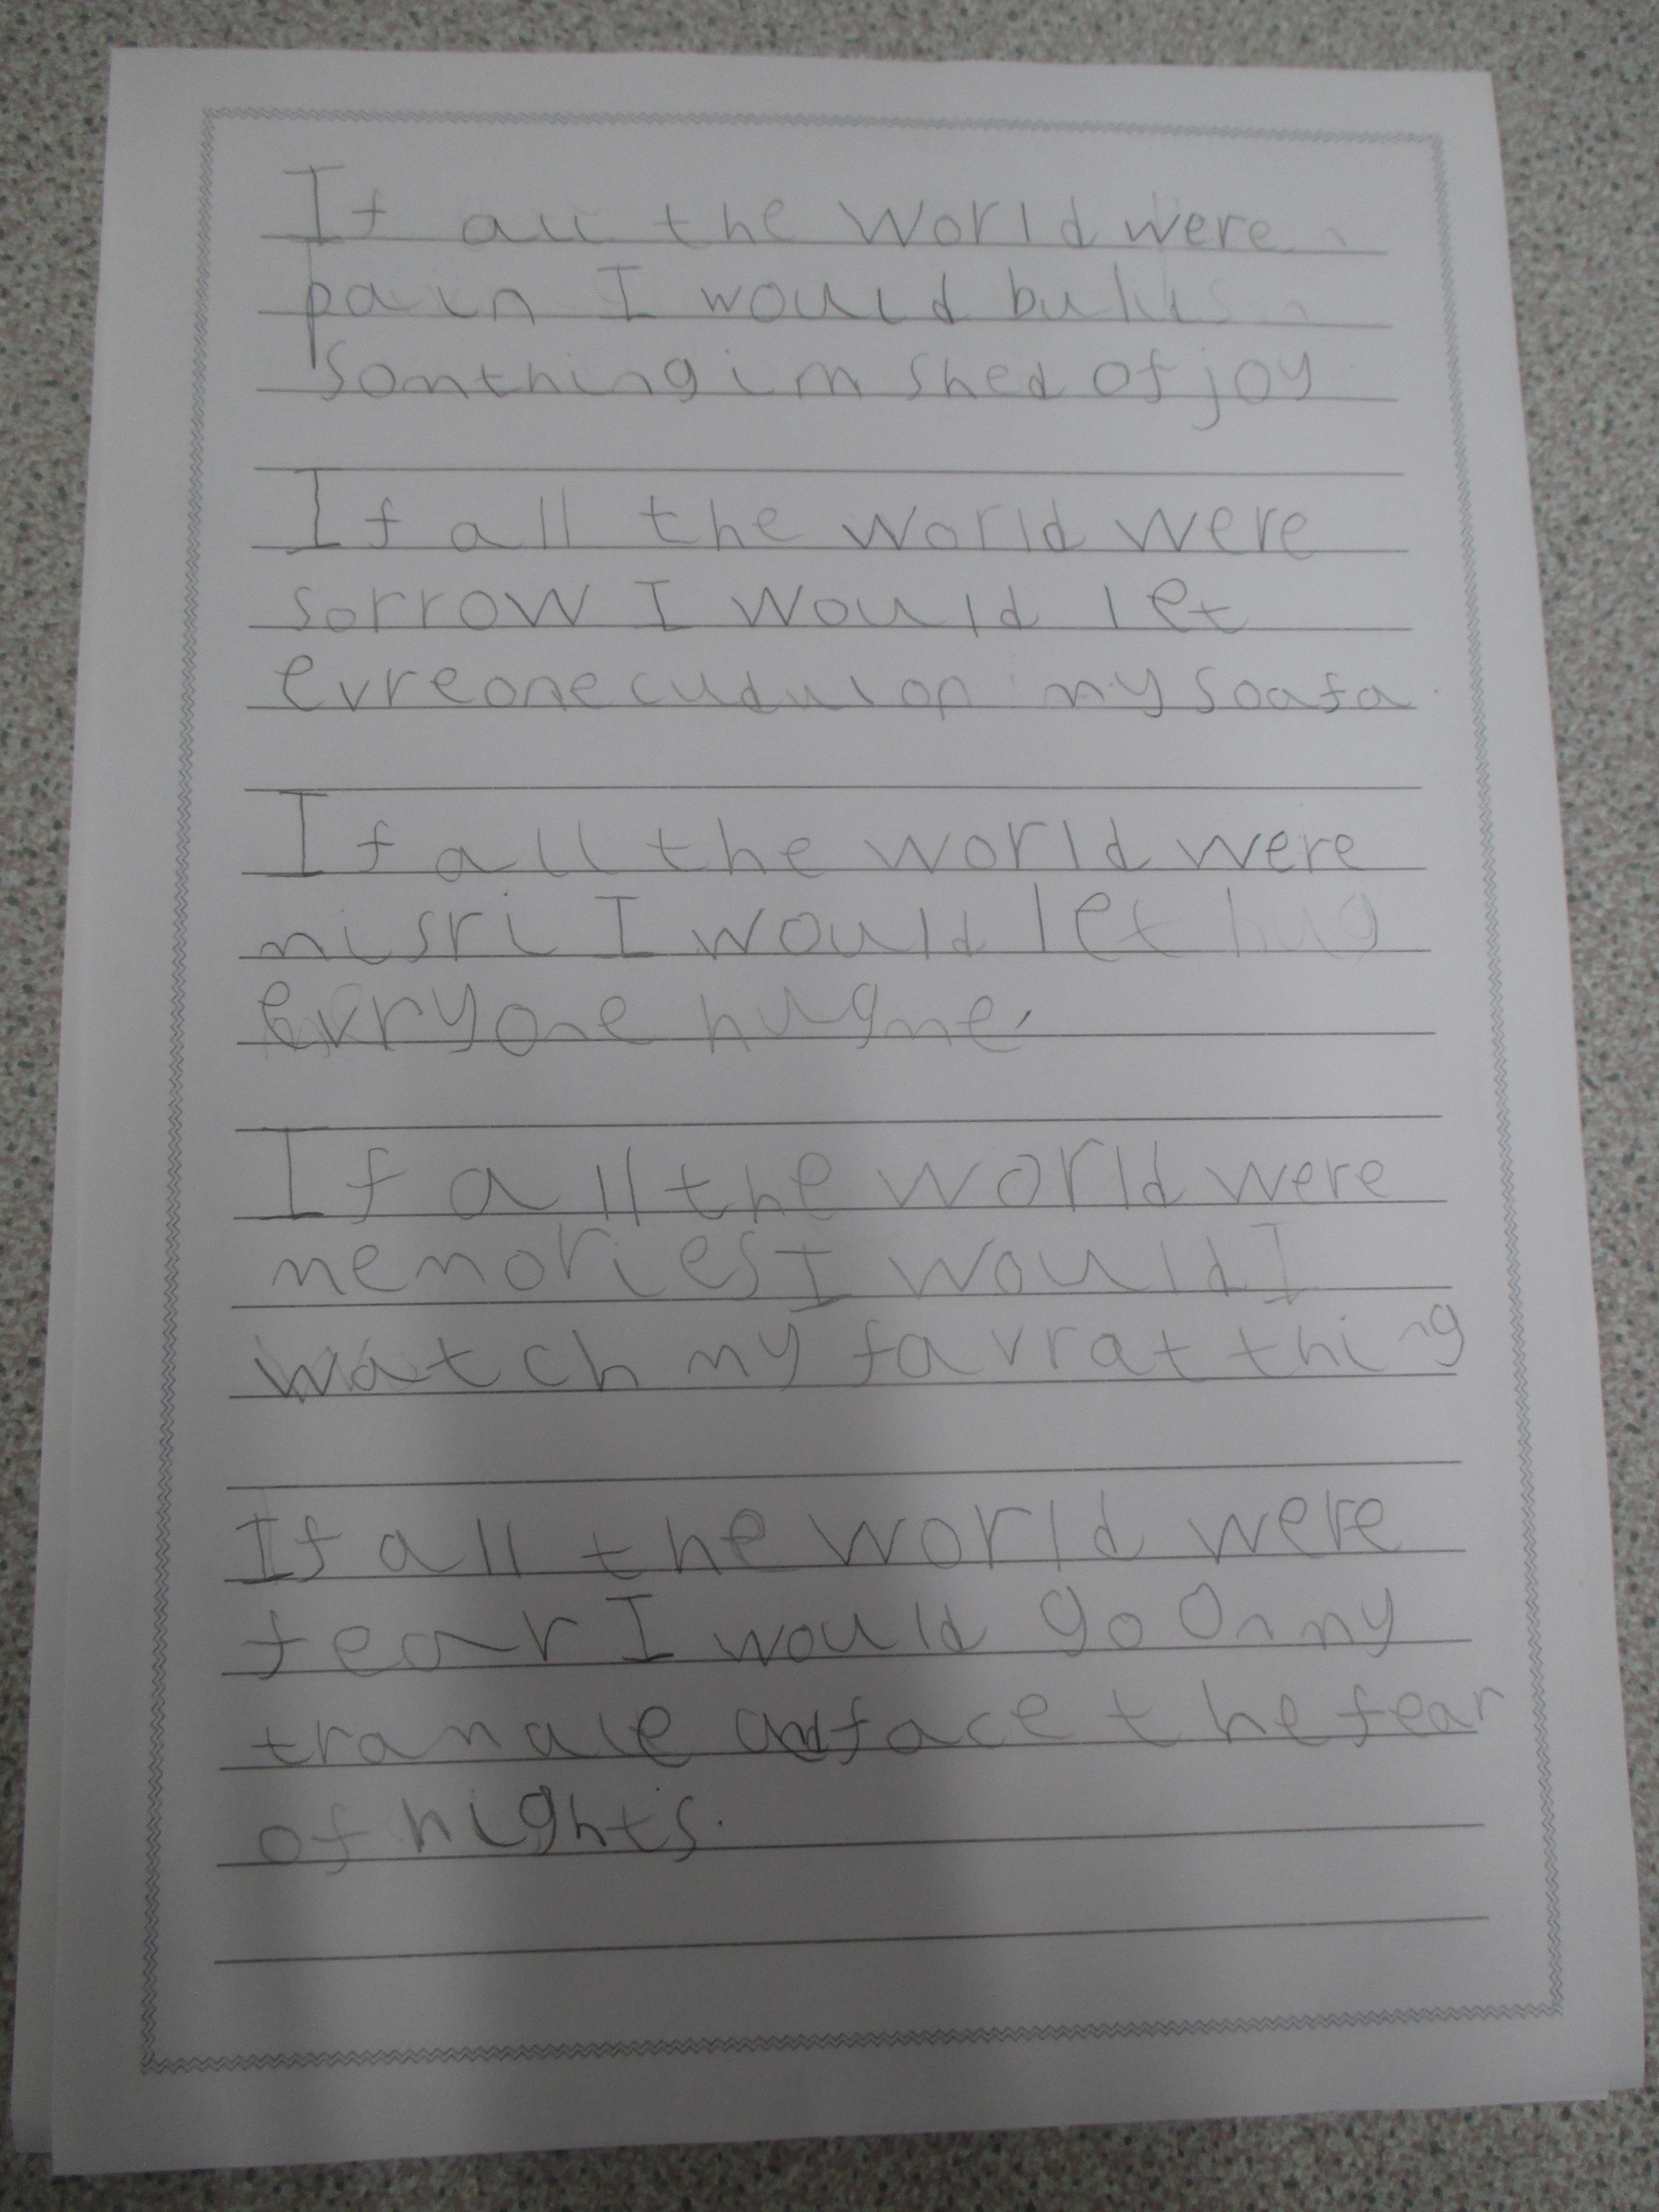 If all the world were
pain I would
somthing im shed of joy
If all the world were
sorrow I would let
evreone cudul on my soafa
If all the world were
misri I would let hug
evryone hug me.
If all the world were
memories I would I
watch my favrat thing
If all the world were
fear I would go on my
and face the fear
of nights.